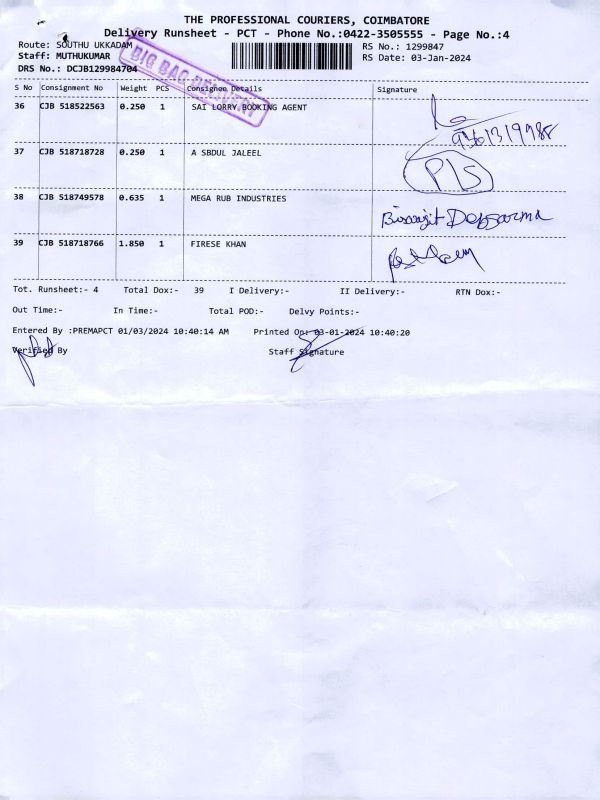 THE PROFESSIONAL COURIERS, COIMBATORE
Delivery Runsheet - PCT - Phone No.:0422-3505555 - Page No.:4
Route: SOUTHU UKKADAM RS No.: 1299847
Staff: MUTHUKUMAR RS Date: 03-Jan-2024
DRS No.: DCJB129984704
BIG BAG DELIVERY
S No Consignment No Weight PCS Consignee Details Signature
36 CJB 518522563 0.250 1 SAI LORRY BOOKING AGENT
37 CJB 518718728 0.250 1 A SBDUL JALEEL
PLS
38 CJB 518749578 0.635 1 MEGA RUB INDUSTRIES
39 CJB 518718766 1.850 1 FIRESE KHAN
Tot. Runsheet:- 4 Total Dox:- 39 I Delivery:- II Delivery:- RTN Dox:-
Out Time:- In Time:- Total POD:- Delvy Points:-
Entered By :PREMAPCT 01/03/2024 10:40:14 AM Printed On: 03-01-2024 10:40:20
Verified By Staff Signature